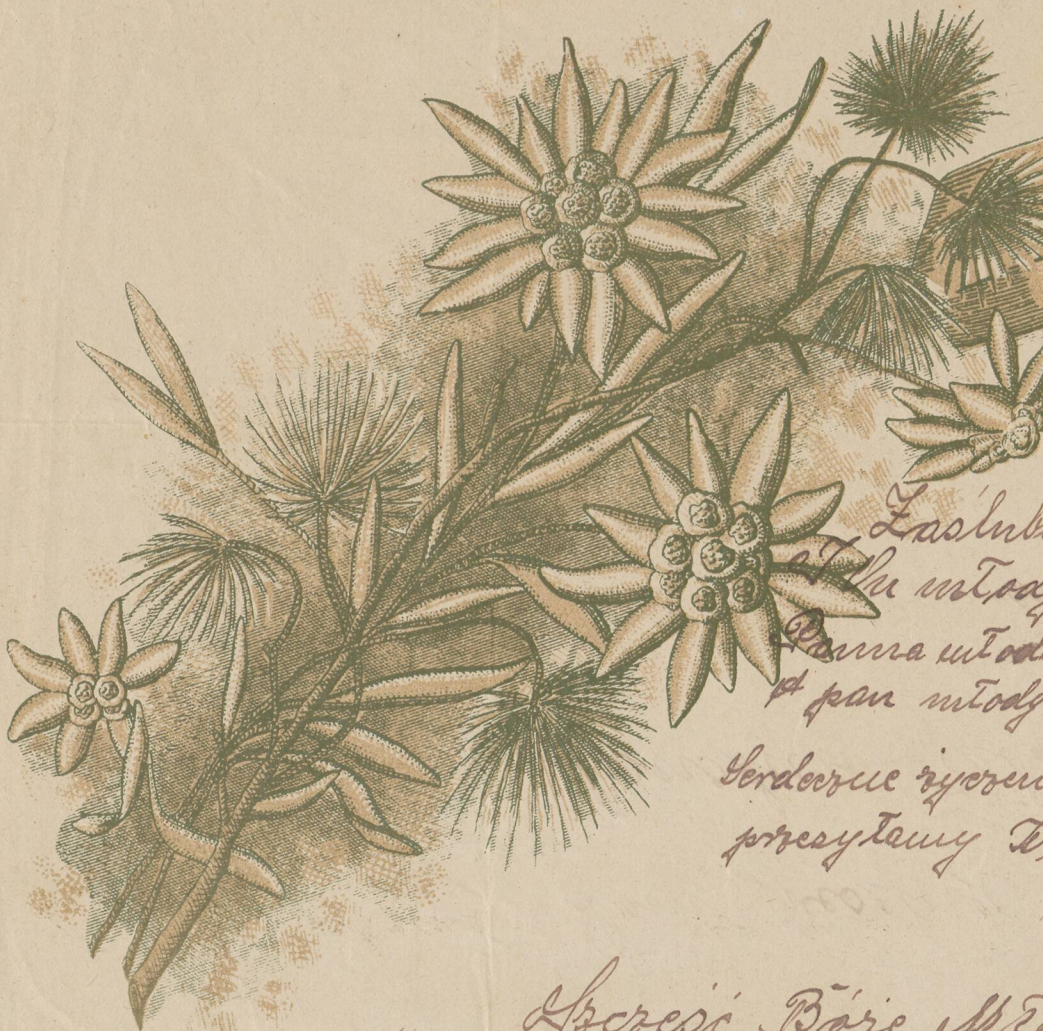 Zaślub
młod
Panna młod
A pan młody
Serdeczne życzen
przesyłamy Te
Szczęść Boże Mł